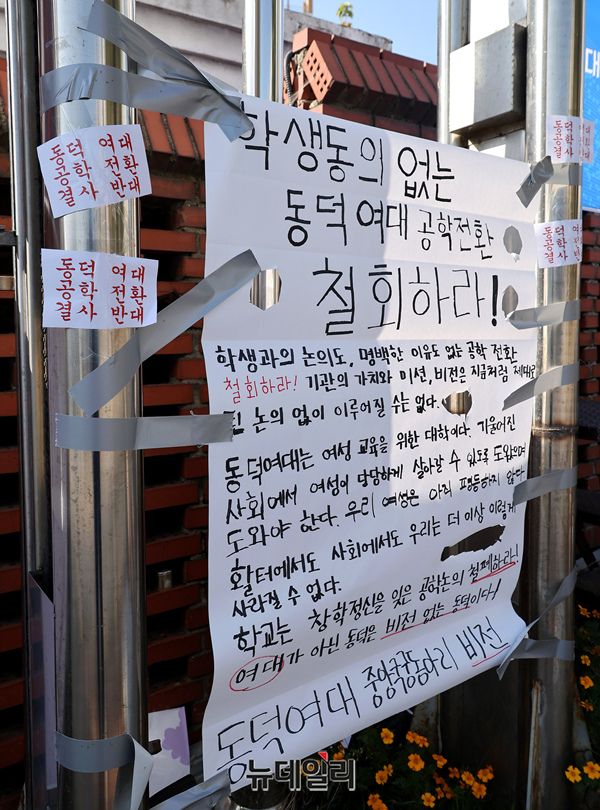 학생동의 없는
동덕여대 공학전환
철회하라!
학생과의 논의도, 명백한 이유도 없는 공학 전환
철회하라! 기관의 가치와 미션, 비전은 지금처럼 제대로
된 논의 없이 이루어질 수는 없다.
동덕여대는 여성 교육을 위한 대학이다. 기울어진
사회에서 여성이 당당하게 살아갈 수 있도록 도왔으며
도와야 한다. 우리 여성은 아직 평등하지 않다.
활터에서도 사회에서도 우리는 더 이상 이렇게
사라질 수 없다.
학교는 창학정신을 잊은 공학논의 철폐하라!
여대가 아닌 동덕은 비전 없는 동덕이다!
동덕여대 중앙 비전
동덕 여대
공학 전환
결사 반대
동덕 여대
공학 전환
결사 반대
동덕 여
공학
결사 반대
동덕 여
공학 전
결사 반대
대
뉴데일리